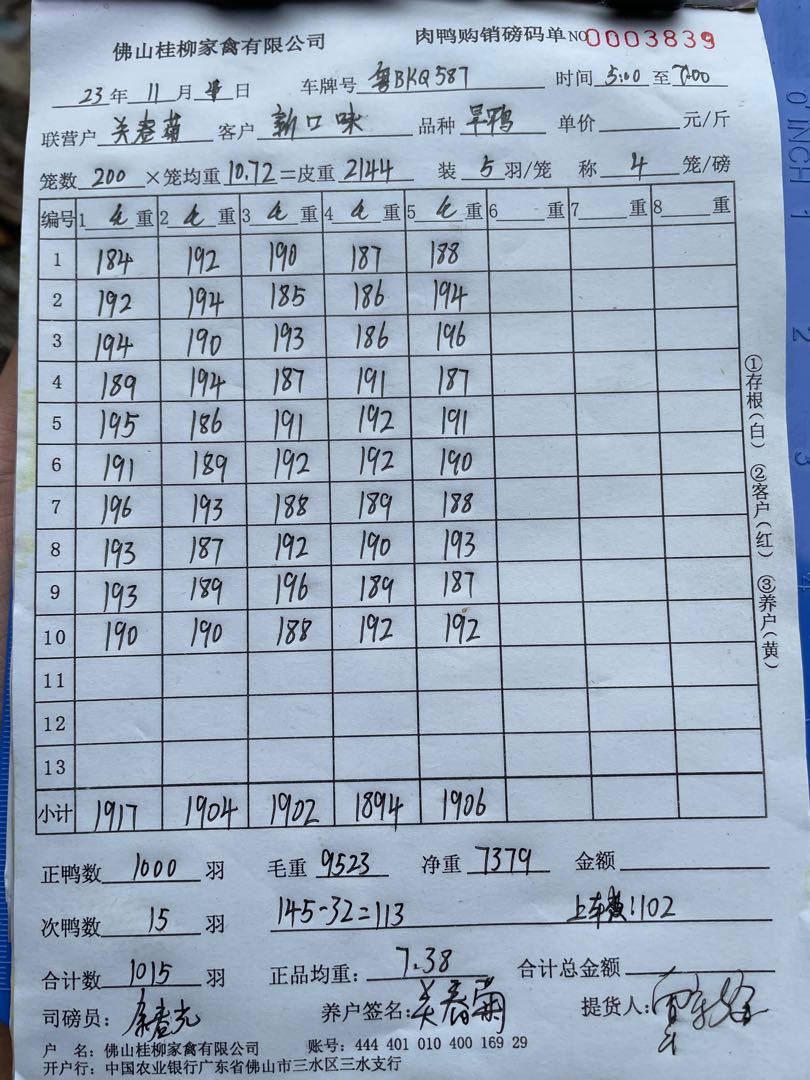 佛山桂柳家禽有限公司 肉鸭购销磅码单 NO0003839
23年 11月 日 车牌号 粤BKQ587 时间 5:00 至 7:00
联营户 关春菊 客户 新口味 品种 旱鸭 单价 元/斤
笼数 200 ×笼均重 10.72 =皮重 2144 装 5 羽/笼 称 4 笼/磅
编号 1 毛 重 2 毛 重 3 毛 重 4 毛 重 5 毛 重 6 重 7 重 8 重
1 184 192 190 187 188
2 192 194 185 186 194
3 194 190 193 186 196
4 189 194 187 191 187
5 195 186 191 192 191
6 191 189 192 192 190
7 196 193 188 189 188
8 193 187 192 190 193
9 193 189 196 189 187
10 190 190 188 192 192
11
12
13
小计 1917 1904 1902 1894 1906
①存根(白) ②客户(红) ③养户(黄)
正鸭数 1000 羽 毛重 9523 净重 7379 金额
次鸭数 15 羽 145-32=113 上车数:102
合计数 1015 羽 正品均重: 7.38 合计总金额
司磅员: 养户签名: 关春菊 提货人:
户 名: 佛山桂柳家禽有限公司 账号: 444 401 010 400 169 29
开户行: 中国农业银行广东省佛山市三水区三水支行
0 INCH 1 2 3 4